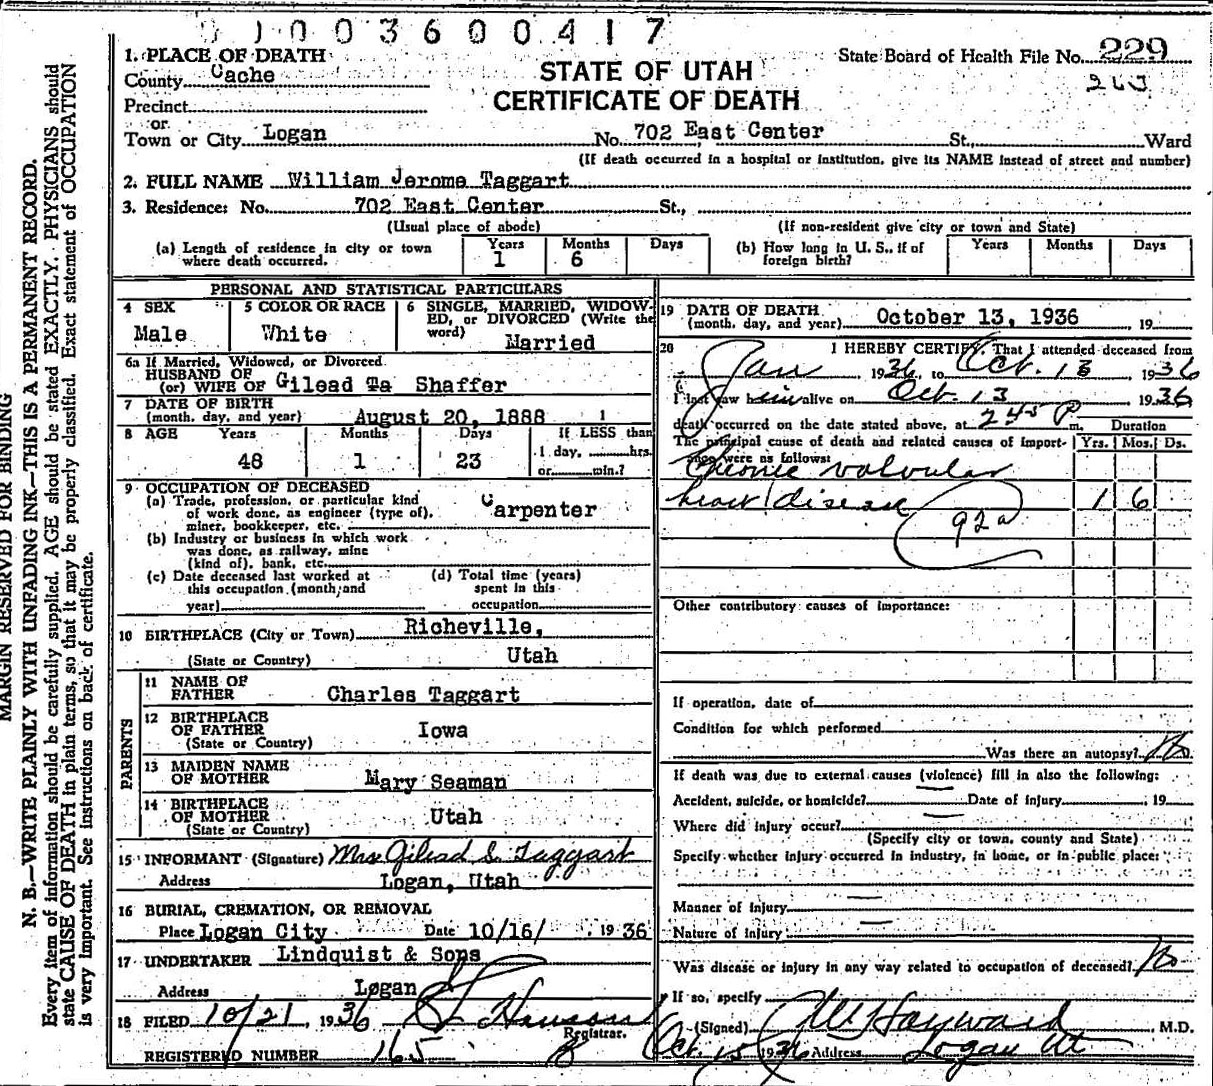 0 1 0 0 3 6 0 0 4 1 7
MARGIN RESERVED FOR BINDING
N. B.—WRITE PLAINLY WITH UNFADING INK—THIS IS A PERMANENT RECORD.
Every item of information should be carefully supplied. AGE should be stated EXACTLY. PHYSICIANS should
state CAUSE OF DEATH in plain terms, so that it may be properly classified. Exact statement of OCCUPATION
is very important. See instructions on back of certificate.
State Board of Health File No. 229
STATE OF UTAH
CERTIFICATE OF DEATH
1. PLACE OF DEATH
County Cache
Precinct
or
Town or City Logan No. 702 East Center St., Ward
(If death occurred in a hospital or institution, give its NAME instead of street and number)
2. FULL NAME William Jerome Taggart
3. Residence: No. 702 East Center St.,
(Usual place of abode) (If non-resident give city or town and State)
(a) Length of residence in city or town where death occurred. Years 1 Months 6 Days
(b) How long in U. S., if of foreign birth? Years Months Days
PERSONAL AND STATISTICAL PARTICULARS
4 SEX Male
5 COLOR OR RACE White
6 SINGLE, MARRIED, WIDOW-
ED, or DIVORCED (Write the
word) Married
6a If Married, Widowed, or Divorced
HUSBAND OF
(or) WIFE OF Gilead Ta Shaffer
7 DATE OF BIRTH
(month, day, and year) August 20, 1888 1
8 AGE Years Months Days If LESS than
48 1 23 1 day, hrs.
or min.?
9 OCCUPATION OF DECEASED
(a) Trade, profession, or particular kind
of work done, as engineer (type of),
miner, bookkeeper, etc. Carpenter
(b) Industry or business in which work
was done, as railway, mine
(kind of), bank, etc.
(c) Date deceased last worked at
this occupation (month, and
year)
(d) Total time (years)
spent in this
occupation
10 BIRTHPLACE (City or Town) Richeville,
(State or Country) Utah
PARENTS
11 NAME OF
FATHER Charles Taggart
12 BIRTHPLACE
OF FATHER Iowa
(State or Country)
13 MAIDEN NAME
OF MOTHER Mary Seaman
14 BIRTHPLACE
OF MOTHER Utah
(State or Country)
15 INFORMANT (Signature) Mrs Gilead S. Taggart
Address Logan, Utah
16 BURIAL, CREMATION, OR REMOVAL
Place Logan City Date 10/16/ , 1936
17 UNDERTAKER Lindquist & Sons
Address Logan
18 FILED 10/21, 1936
Registrar.
REGISTERED NUMBER 165
19 DATE OF DEATH
(month, day, and year) October 13, 1936, 19
20 I HEREBY CERTIFY, That I attended deceased from
Jan 1936, to Oct. 13 1936
I last saw him alive on Oct 13 1936
death occurred on the date stated above, at 245 P m. Duration
The principal cause of death and related causes of import-
ance were as follows: Yrs. Mos. Ds.
Chronic valvular
heart disease 1 6
92a
Other contributory causes of importance:
If operation, date of
Condition for which performed
Was there an autopsy? No
If death was due to external causes (violence) fill in also the following:
Accident, suicide, or homicide? Date of injury , 19
Where did injury occur?
(Specify city or town, county and State)
Specify whether injury occurred in industry, in home, or in public place:
Manner of Injury
Nature of Injury
Was disease or injury in any way related to occupation of deceased? No
If so, specify
(Signed) Hayward, M.D.
Oct. 15 1936 Address Logan Ut